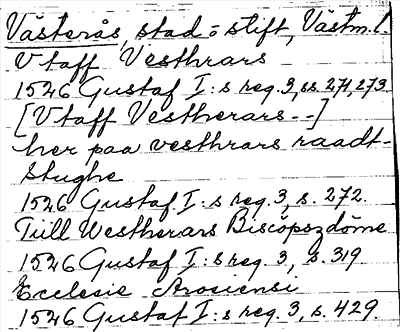 Västerås, stad o stift, Västm. l.
Vtaff Vesthrars
1526 Gustaf I:s reg. 3, ss. 271, 273
[Vtaff Vestherars - -]
her paa vesthrars raadt-
stughe
1526 Gustaf I:s reg. 3, s. 272.
Till Westherars Biscöpszdöme
1526 Gustaf I:s reg. 3, s. 319
Ecclesie Arosiensi
1526 Gustaf I:s reg. 3, s. 429.